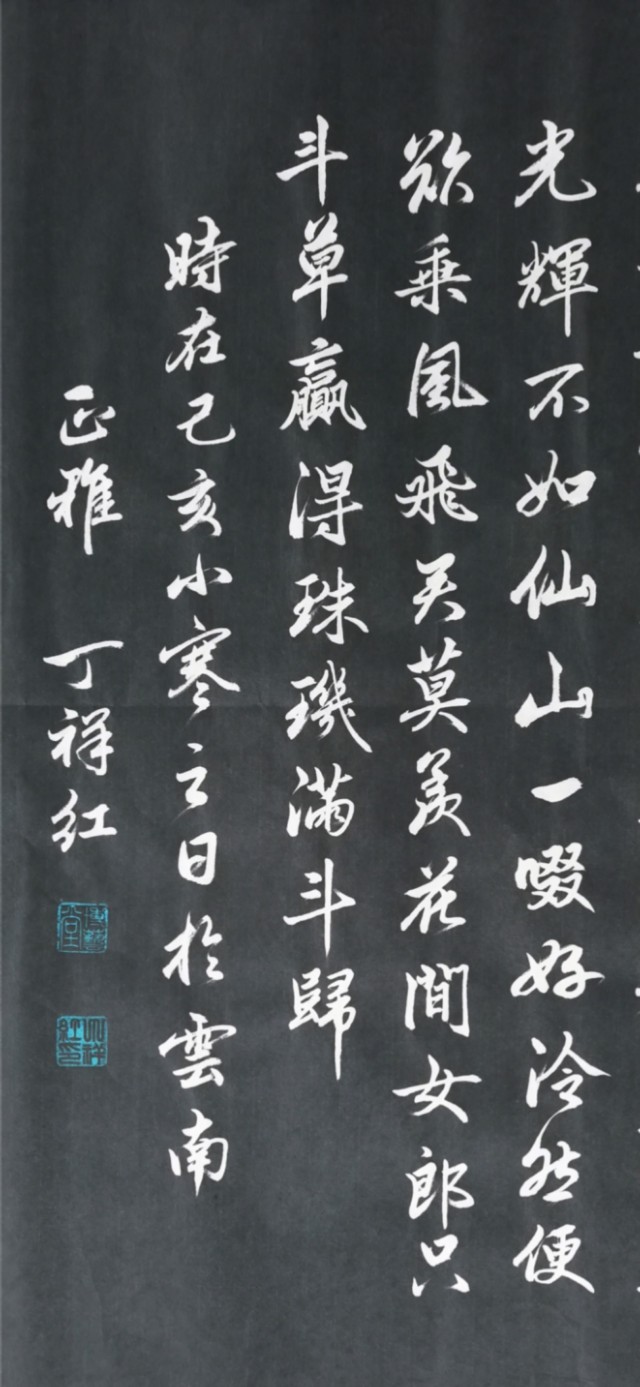 光輝不如仙山一啜好冷然便
欲乗風飛君莫羨花間女郎只
斗草贏得珠璣滿斗歸
時在己亥小寒之日於雲南
正雅 丁祥紅